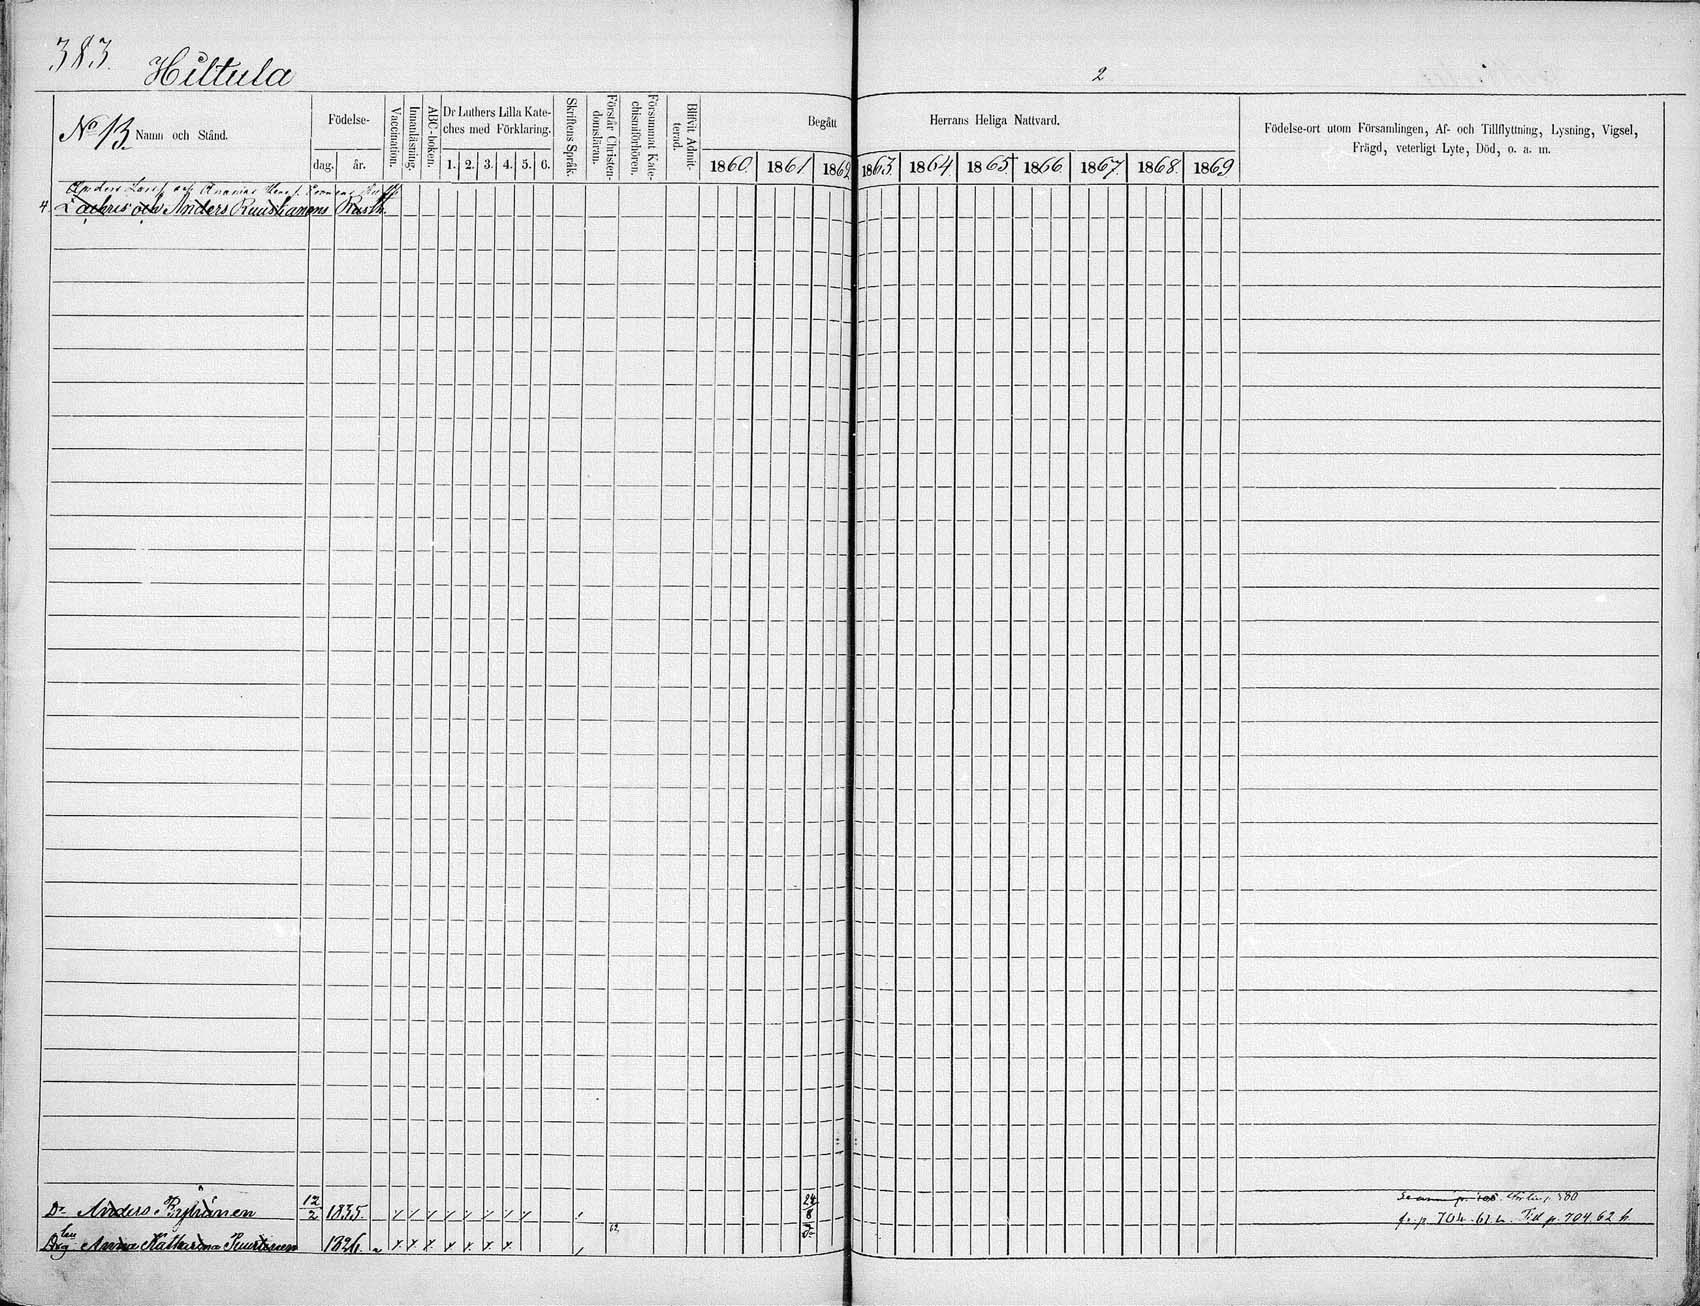 383.
Hiltula
2
No 13.
Namn och Stånd.
Födelse-
dag.
år.
Vaccination.
Innanläsning.
ABC-boken.
Dr Luthers Lilla Kate-
ches med Förklaring.
1. 2. 3. 4. 5. 6.
Skriftens Språk.
Förstår Christen-
domsläran.
Försummat Kate-
chismiförhören.
Blifvit Admit-
terad.
Begått
Herrans Heliga Nattvard.
1860. 1861 1862 1863. 1864. 1865 1866. 1867. 1868. 1869
Födelse-ort utom Församlingen, Af- och Tillflyttning, Lysning, Vigsel,
Frägd, veterligt Lyte, Död, o. a. m.
Anders Larsf. och Ananias
4. och Anders Ruuskanens Rusth.
Dr Anders 12/2 1835. 24/8
p. 704. 61 Till p. 704. 62
Anna Katharina 1826. 62.